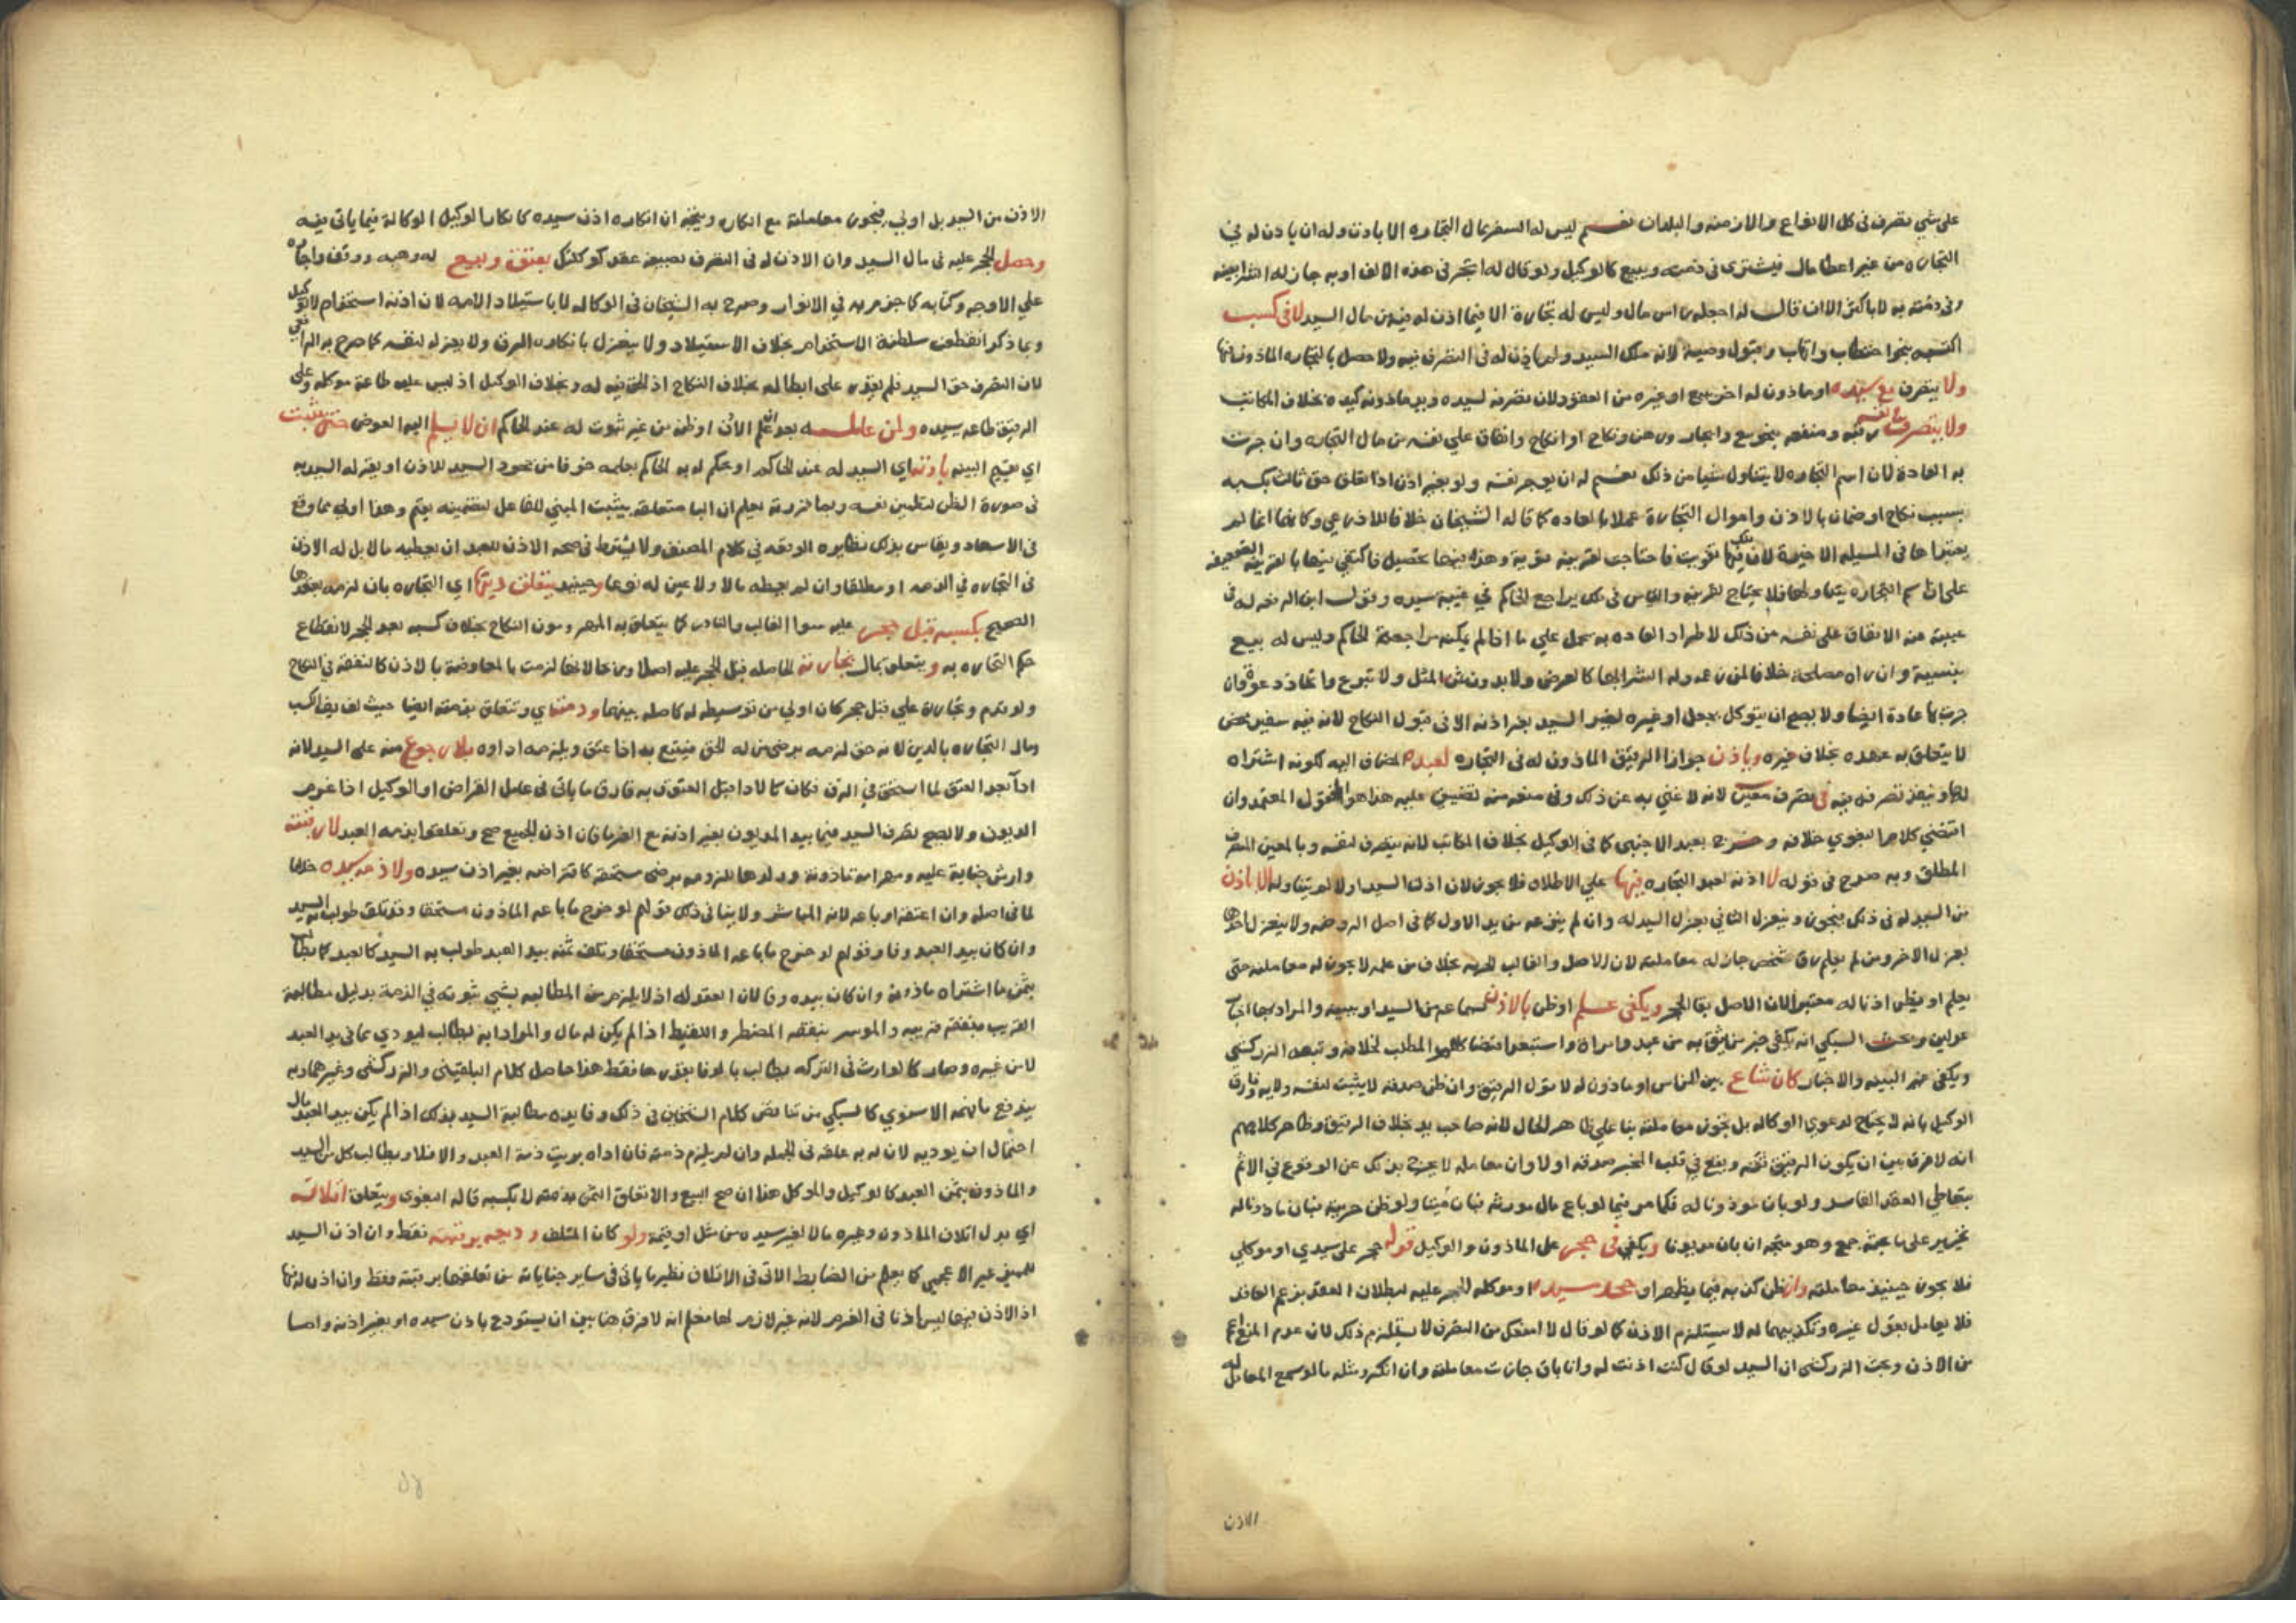 على شي تصرف في كل الانواع والازمنه والبلدان نعم ليس له السفر بمال التجاره الا باذن وله ان ياذن له في
التجاره من غير اعطا مال فيشتري في ذمته ويبيع كالوكيل ولو قال له اتجر في هذه الالف او به جاز له الشرا بعينه
وفي ذمته به لا باكثر الا ان قال له اجعله راس مال وليس له تجارة الا فيما اذن له فيه من مال السيد لا في كسب
اكتسبه بنحو احتطاب واتهاب وقبول وصية لانه ملك السيد ولم ياذن له في التصرف فيه ولا حصل بالتجاره الماذون فيها
ولا يتصرف مع سيده او ماذون له اخر ببيع او غيره من العقود لان تصرفه لسيده ويد ماذونه كيده بخلاف المكاتب
ولا يتصرف في نفسه رقبة ومنفعه بنحو بيع وايجار ورهن ونكاح او انكاح وانفاق على نفسه من مال التجاره وان جرت
به العادة لان اسم التجاره لا يتناول شيا من ذلك نعم له ان يوجر نفسه ولو بغير اذن اذا تعلق حق ثالث بكسبه
بسبب نكاح او ضمان بالاذن واموال التجارة عملا بالعاده كما قاله الشيخان خلافا للاذرعي وكانهما انما لم
يعتبراها في المسيله الاخيرة لان فيها تفويت فاحتاجت لقرينه قوية وهذه فيها تحصيل فاكتفي فيها بالقرينه الضعيفه
على ان اسم التجاره يتناولها فلا يحتاج لقرينه والقياس في ذلك يراجع الحاكم في غيبة سيده وقول ابن الرفعه له في
غيبته الانفاق على نفسه من ذلك لاطراد العاده به يحمل علي ما اذا لم يمكنه مراجعة الحاكم وليس له بيع
بنسيية وان راه مصلحة خلافا لمن زعمه وله الشرا بها كالعرض ولا بدون ثمن المثل ولا تبرع واتخاذ دعوة وان
جرت بها عادة ايضا ولا يصح ان يتوكل بجعل او غيره لغير السيد بغير اذنه الا في قبول النكاح لانه فيه سفير محض
لا يتعلق به عهده بخلاف غيره وياذن جوازا الرقيق الماذون له في التجاره لعبدها المضاف اليه لكونه اشتراه
لها وينفذ تصرفه فيه في تصرف معين لانه لا غني به عن ذلك وفي منعه منه تضييق عليه هذا هو المنقول المعتمد وان
اقتضي كلام البغوي خلافه وخرج بعبد الاجنبي كما في الوكيل بخلاف المكاتب لانه يتصرف لنفسه وبالمعين التصرف
المطلق وبه صرح في قوله لا اذنه لعبد التجاره فيها علي الاطلاق فلا يجوز لان اذن السيد اولا لم يتناوله الا باذن
من السيد له في ذلك فيجوز وينعزل الثاني بعزل السيد له وان لم ينزعه من يد الاول كما في اصل الروضه ولا ينعزل احدهما
بعزل الاخر ومن لم يعلم رق شخص جاز له معاملته لان الاصل والغالب الحريه بخلاف من علمه لا يجوز له معاملته حتى
يعلم او يظن اذنا له معتبرا لان الاصل بقا الحجر ويكفي علم او ظن بالاذن كسماعه من السيد او ببينه والمراد بها اخبار
عدلين وبحث السبكي انه يكفي خبر من يثق به من عبد وامراة واستبعد اقتضا كلام المطلب لخلافه وتبعه الزركشي
ويكفي عن البينه والاخبار كان شاع بين الناس او ماذون له لا قول الرقيق وان ظن صدقه لا يثبت لنفسه ولاية وفارق
الوكيل بانه لا يحتاج لدعوي الوكاله بل يجوز معاملته بنا علي ظاهر الحال لانه صاحب يد بخلاف الرقيق وظاهر كلامهم
انه لا فرق بين ان يكون الرقيق ثقة ويقع في قلب المخبر صدقه اولا وان معامله لا يخرج بذلك عن الوقوع في الاثم
بتعاطي العقد الفاسد ولو بان موذونا له فكما مر فيما لو باع مال مورثه فبان ميتا ولو ظن حريته فبان ماذونا له
تخريجه على ما بحثه جمع وهو متجه ان بان مديونا ويكفي في حجر على الماذون والوكيل قوله حجر على سيدي او موكلي
فلا يجوز حينيذ معاملته وان ظن كذبه فيما يظهر او جحد سيده او موكله للحجر عليه لبطلان العقد بزعم العاقد
فلا يعامل بقول غيره وتكذيبهما له لا يستلزم الاذن كما لو قال لا امنعك من التصرف لا يستلزم ذلك لان عدم المنع اعم
من الاذن وبحث الزركشي ان السيد لو قال كنت اذنت له وانا باق جازت معاملته وان انكر ومثله ما لو سمع المعامل له
الاذن
الاذن من السيد بل اولى فيجوز معاملته مع انكاره ويتجه ان انكاره اذن سيده كانكار الوكيل الوكالة فيما ياتي فيه
وحصل الحجر عليه في مال السيد وان الاذن له في التصرف بصيغة عقد كوكلتك بعتق وبيع له وهبه ووقف واجاره
علي الاوجه وكتابه كما جزم به في الانوار وصرح به الشيخان في الوكاله لا باستيلاد الامه لان اذنه استخدام لا توكيل
وبما ذكر انقطعت سلطنة الاستخدام بخلاف الاستيلاد ولا ينعزل بانكاره الرق ولا بعزله لنفسه كما صرح به الرافعي
لان التصرف حق السيد فلم يقدر على ابطاله بخلاف النكاح اذ الحق فيه له وبخلاف الوكيل اذ ليس عليه طاعة موكله وعلى
الرقيق طاعة سيده ولمن عامله بعد علم الاذن او ظن من غير ثبوت له عند الحاكم ان لا يسلم اليه العوض حتى يثبت
اي يقيم البينه باذنه اي السيد له عند الحاكم او يحكم له به الحاكم بعلمه خوفا من جحود السيد للاذن او يقر له السيد به
في صورة الظن لتطمين نفسه وبما قررته يعلم ان البا متعلقه بيثبت المبني للفاعل لتضمينه يقيم وهذا اولي مما وقع
في الاسعاد ويقاس بذلك نظايره الواقعه في كلام المصنف ولا يشترط في صحة الاذن للعبد ان يعطيه مالا بل له الاذن
في التجاره في الذمه او مطلقا وان لم يعطه مالا ولا عين له نوعا وحينيذ يتعلق دينها اي التجاره بان لزمه بعقدها
الصحيح بكسبه قبل حجر عليه سوا الغالب والنادر كما يتعلق به المهر ومون النكاح بخلاف كسبه بعد الحجر لانقطاع
حكم التجاره به ويتعلق بمال تجارته الحاصله قبل الحجر عليه اصلا وربحا لانها لزمت بالمعاوضة بالاذن كالنفقه في النكاح
ولو قدم وتجارة علي قبل حجر كان اولي من توسيطه له كاصله بينهما وذمته اي وتتعلق بذمته ايضا حيث لم يف الكسب
ومال التجاره بالدين لانه حق لزمه برضى من له الحق فيتبع به اذا عتق ويلزمه اداوه بلا رجوع منه على السيد لانه
ادا بعد العتق لما استحق في الرق فكان كالادا قبل العتق وبه فارق ما ياتي في عامل القراض او الوكيل اذا غرم
الديون ولا يصح تصرف السيد فيما بيد المديون بغير اذنه مع الغرما فان اذن الجميع صح وتعلقوا بذمة العبد لا رقبته
وارش جناية عليه ومهر امة ماذونه وولدها للزومه برضى مستحقه كاقتراضه بغير اذن سيده ولا ذمة سيده خلافا
لما في اصله وان اعتقه او باعه لانه المباشر ولا ينافي ذلك قولهم لو خرج ما باعه الماذون مستحقا وقد تلف طولب به السيد
وان كان بيد العبد وفا وقولهم لو خرج ما باعه الماذون مستحقا وتلف ثمنه بيد العبد طولب به السيد كالعبد كما يطالب
بثمن ما اشتراه ماذونه وان كان بيده وفا لان العقد له اذ لا يلزم من المطالبه بشي ثبوته في الذمة بدليل مطالبة
القريب بنفقة قريبه والموسر بنفقه المضطر واللقيط اذا لم يكن له مال والمراد انه يطالب ليودي مما في يد العبد
لا من غيره وصار كالوارث في التركه يطالب بالوفا بقدرها فقط هذا حاصل كلام البلقيني والزركشي وغيرهما وبه
يندفع ما فهمه الاسنوي كالسبكي من تناقض كلام الشيخين في ذلك وفايدة مطالبة السيد بذلك اذا لم يكن بيد العبد مال
احتمال ان يوديه لان له به علقه في الجمله وان لم يلزم ذمته فان اداه بريت ذمة العبد والا فلا ويطالب كل من السيد
والماذون بثمن العبد كالوكيل والموكل هذا ان صح البيع والا تعلق الثمن بذمته لا بكسبه قاله البغوي ويتعلق اتلافه
اي بدل اتلاف الماذون وغيره مالا لغير سيده من مثل او قيمة ولو كان المتلف وديعه برقبته فقط وان اذن السيد
للمميز غير الاعجمي كما يعلم من الضابط الاتي في الاتلاف نظير ما ياتي في ساير جناياته من تعلقها برقبته فقط وان اذن له فيها
اذ الاذن فيها ليس اذنا في الغرم لانه غير لازم لها فعلم انه لا فرق هنا بين ان يستودع باذن سيده او بغير اذنه واما